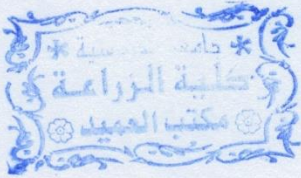 جامعة القادسية
كلية الزراعة
مكتب العميد